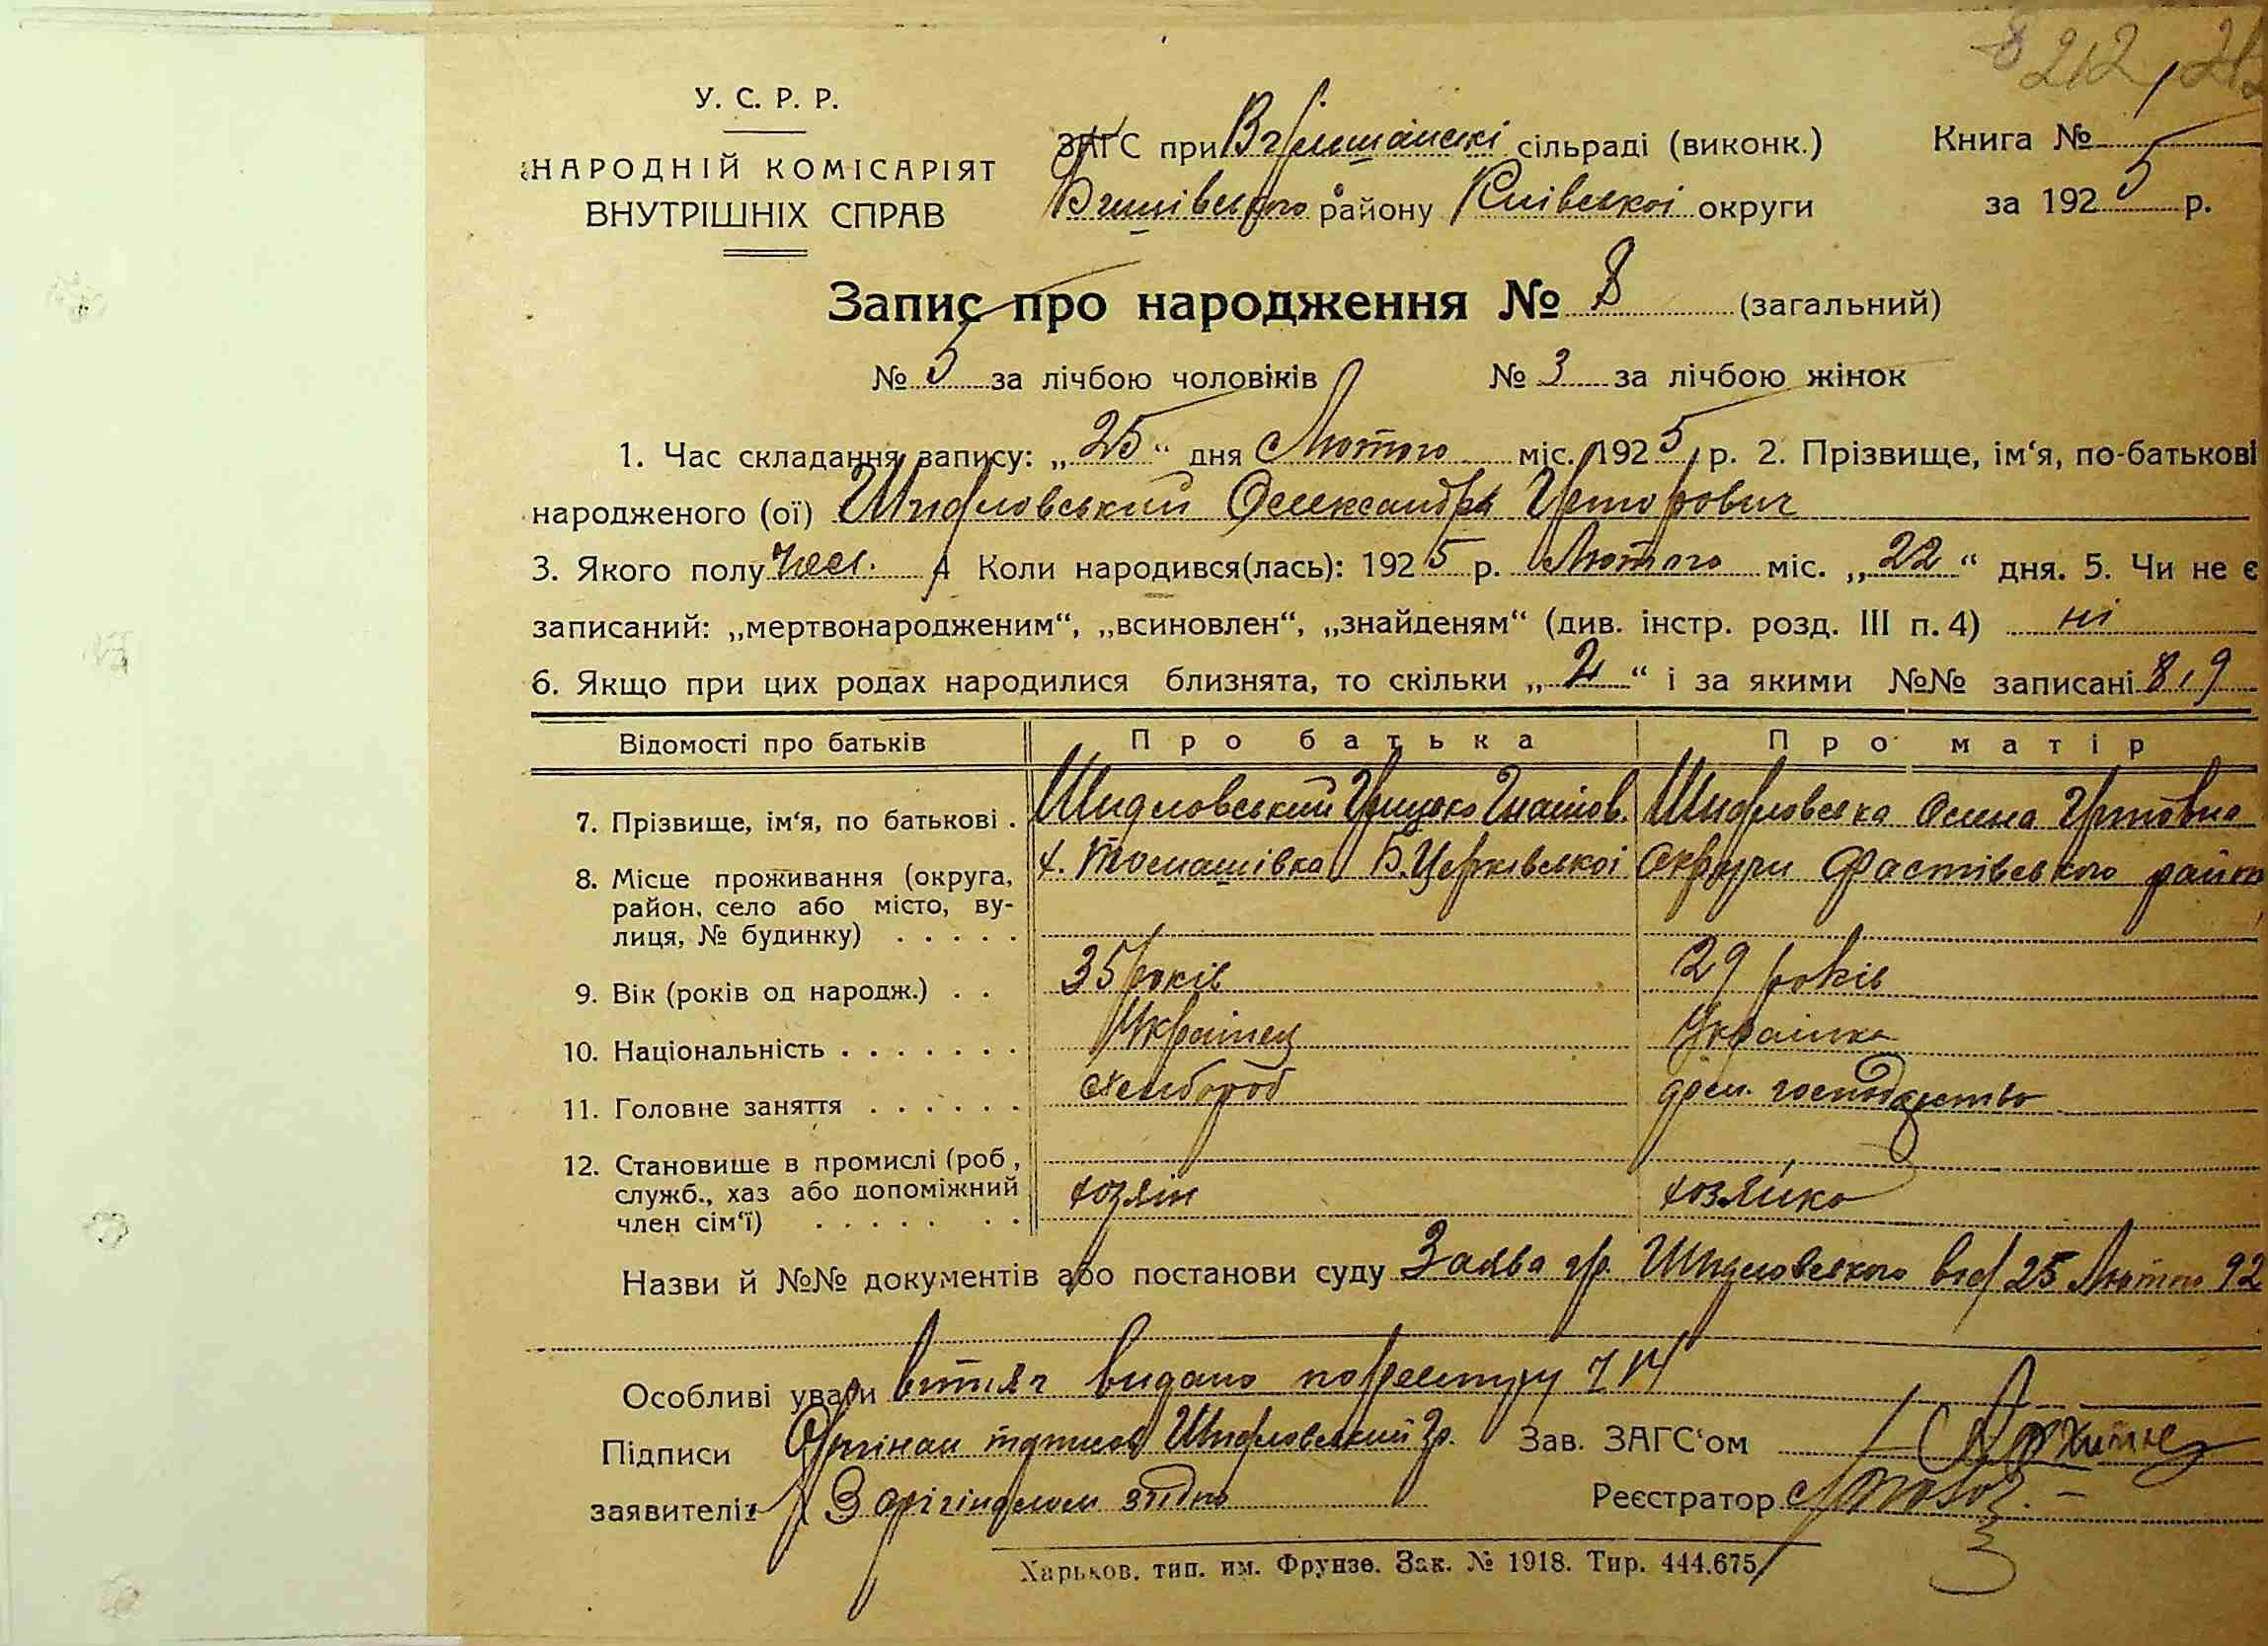 212, 212
У. С. Р. Р.
НАРОДНІЙ КОМІСАРІЯТ
ВНУТРІШНІХ СПРАВ
ЗАГС при сільраді (виконк.)
району Київської округи
Книга №
за 1925 р.
Запис про народження № 8 (загальний)
№ 5 за лічбою чоловіків № 3 за лічбою жінок
1. Час складання запису: „25“ дня Лютого міс. 1925 р. 2. Прізвище, ім‘я, по-батькові
народженого (ої) Шидловський Олександр
3. Якого полу чол. 4 Коли народився(лась): 1925 р. Лютого міс. „22“ дня. 5. Чи не є
записаний: „мертвонародженим“, „всиновлен“, „знайденям“ (див. інстр. розд. III п. 4) ні
6. Якщо при цих родах народилися близнята, то скільки „2“ і за якими №№ записані 8, 9
Відомості про батьків Про батька Про матір
7. Прізвище, ім‘я, по батькові . Шидловський Грицько Шидловська
8. Місце проживання (округа, х. Томашівка Б.Церківської Округи Фастівського
район, село або місто, ву-
лиця, № будинку) . . . . .
9. Вік (років од народж.) . . 35 років 29 років
10. Національність . . . . . . . Українец Українка
11. Головне заняття . . . . . . Хлібороб дом. господарство
12. Становише в промислі (роб, хозяін хозяйка
служб., хаз або допоміжний
член сім‘ї) . . . . . . .
Назви й №№ документів або постанови суду Заява гр. Шидловського від 25 Лютого 92
Особливі уваги витяг видано по реестру
Підписи Шидловський Гр. Зав. ЗАГС‘ом
заявителів З орігіналом згідно Реєстратор
Харьков. тип. им. Фрунзе. Зак. № 1918. Тир. 444.675